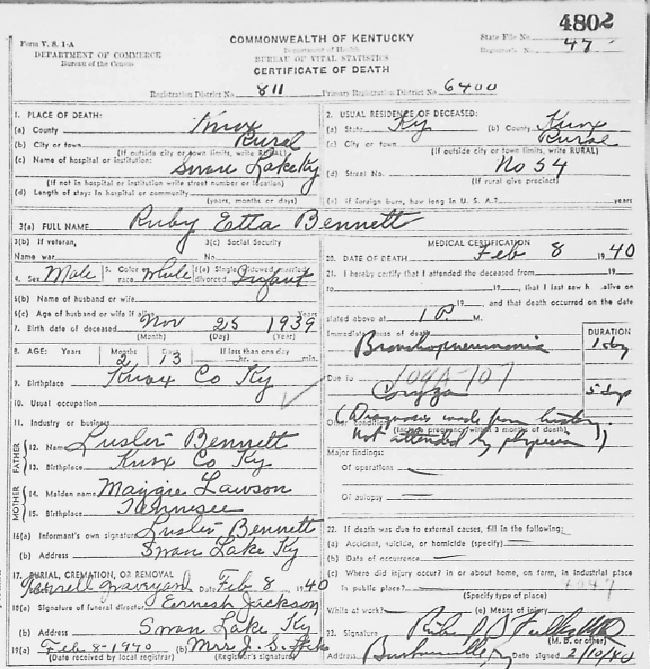 4802
Form V. S. 1-A
COMMONWEALTH OF KENTUCKY
State File No.
DEPARTMENT OF COMMERCE
Department of Health
Registrar's No. 47
Bureau of the Census
BUREAU OF VITAL STATISTICS
CERTIFICATE OF DEATH
Registration District No. 811 Primary Registration District No. 6400
1. PLACE OF DEATH:
(a) County Knox
(b) City or town Rural
(If outside city or town limits, write RURAL)
(c) Name of hospital or institution: Swan Lake Ky
(If not in hospital or institution write street number or location)
(d) Length of stay: In hospital or community
(years, months or days)
2. USUAL RESIDENCE OF DECEASED:
(a) State Ky (b) County Knox
(c) City or town Rural
(If outside city or town limits, write RURAL)
(d) Street No. No 54
(If rural give precinct)
(e) If foreign born, how long in U. S. A.? years
3(a) FULL NAME Ruby Etta Bennett
3(b) If veteran, 3(c) Social Security
Name war No.
4. Sex Male 5. Color or race White 6(a) Single, widowed, married, divorced Infant
6(b) Name of husband or wife
6(c) Age of husband or wife if alive Years
7. Birth date of deceased Nov 25 1939
(Month) (Day) (Year)
8. AGE: Years Months Days If less than one day
2 13 hr. min.
9. Birthplace Knox Co Ky
10. Usual occupation
11. Industry or business
FATHER
12. Name Lusler Bennett
13. Birthplace Knox Co Ky
MOTHER
14. Maiden name Maggie Lawson
15. Birthplace Tennesee
16(a) Informant's own signature Lusler Bennett
(b) Address Swan Lake Ky
17. BURIAL, CREMATION, OR REMOVAL
graveyard Date Feb 8 1940
18(a) Signature of funeral director Earnest Jackson
(b) Address Swan Lake Ky
19(a) Feb 8-1940 (b) Mrs J. S.
(Date received by local registrar) (Registrar's signature)
MEDICAL CERTIFICATION
20. DATE OF DEATH Feb 8 1940
21. I hereby certify that I attended the deceased from 19
to 19 , that I last saw h alive on
19 , and that death occurred on the date
stated above at 1 P. M.
Immediate cause of death DURATION
Bronchopneumonia 1 day
Due to 109A-107
Coryza 5 days
Other conditions (Diagnosis made from history.
(Include pregnancy within 3 months of death)
Not attended by physician)
Major findings:
Of operations
Of autopsy
22. If death was due to external causes, fill in the following:
(a) Accident, suicide, or homicide (specify)
(b) Date of occurrence
(c) Where did injury occur? in or about home, on farm, in industrial place
In public place?
(Specify type of place)
While at work? (e) Means of injury
23. Signature
(M. D. or other)
Address Barbourville, Date signed 2/10/40